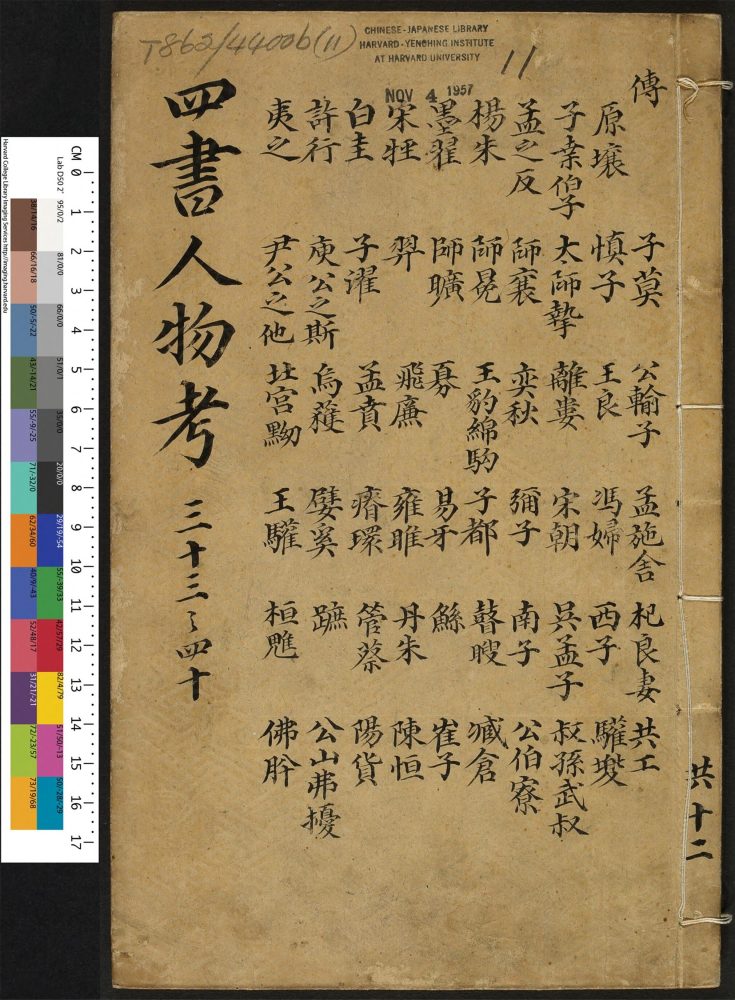 T862/4400b(11)
CHINESE-JAPANESE LIBRARY
HARVARD-YENCHING INSTITUTE
AT HARVARD UNIVERSITY
NOV 4 1957
11
共十二
傳 子莫 公輸子 孟施舍 杞良妻 共工
原壤 慎子 王良 馮婦 西子 驩兜
子桒伯子 太師摯 離婁 宋朝 吳孟子 叔孫武叔
孟之反 師襄 奕秋 彌子 南子 公伯寮
楊朱 師冕 王豹綿駒 子都 瞽瞍 臧倉
墨翟 師曠 奡 易牙 鯀 崔子
宋牼 羿 飛廉 雍雎 丹朱 陳恒
白圭 子濯 孟賁 瘠環 管蔡 陽貨
許行 庾公之斯 烏獲 嬖奚 蹠 公山弗擾
夷之 尹公之他 北宮黝 王驩 桓魋 佛肸
四書人物考 三十三之四十
CM 0 1 2 3 4 5 6 7 8 9 10 11 12 13 14 15 16 17
Harvard College Library Imaging Services http://imaging.harvard.edu